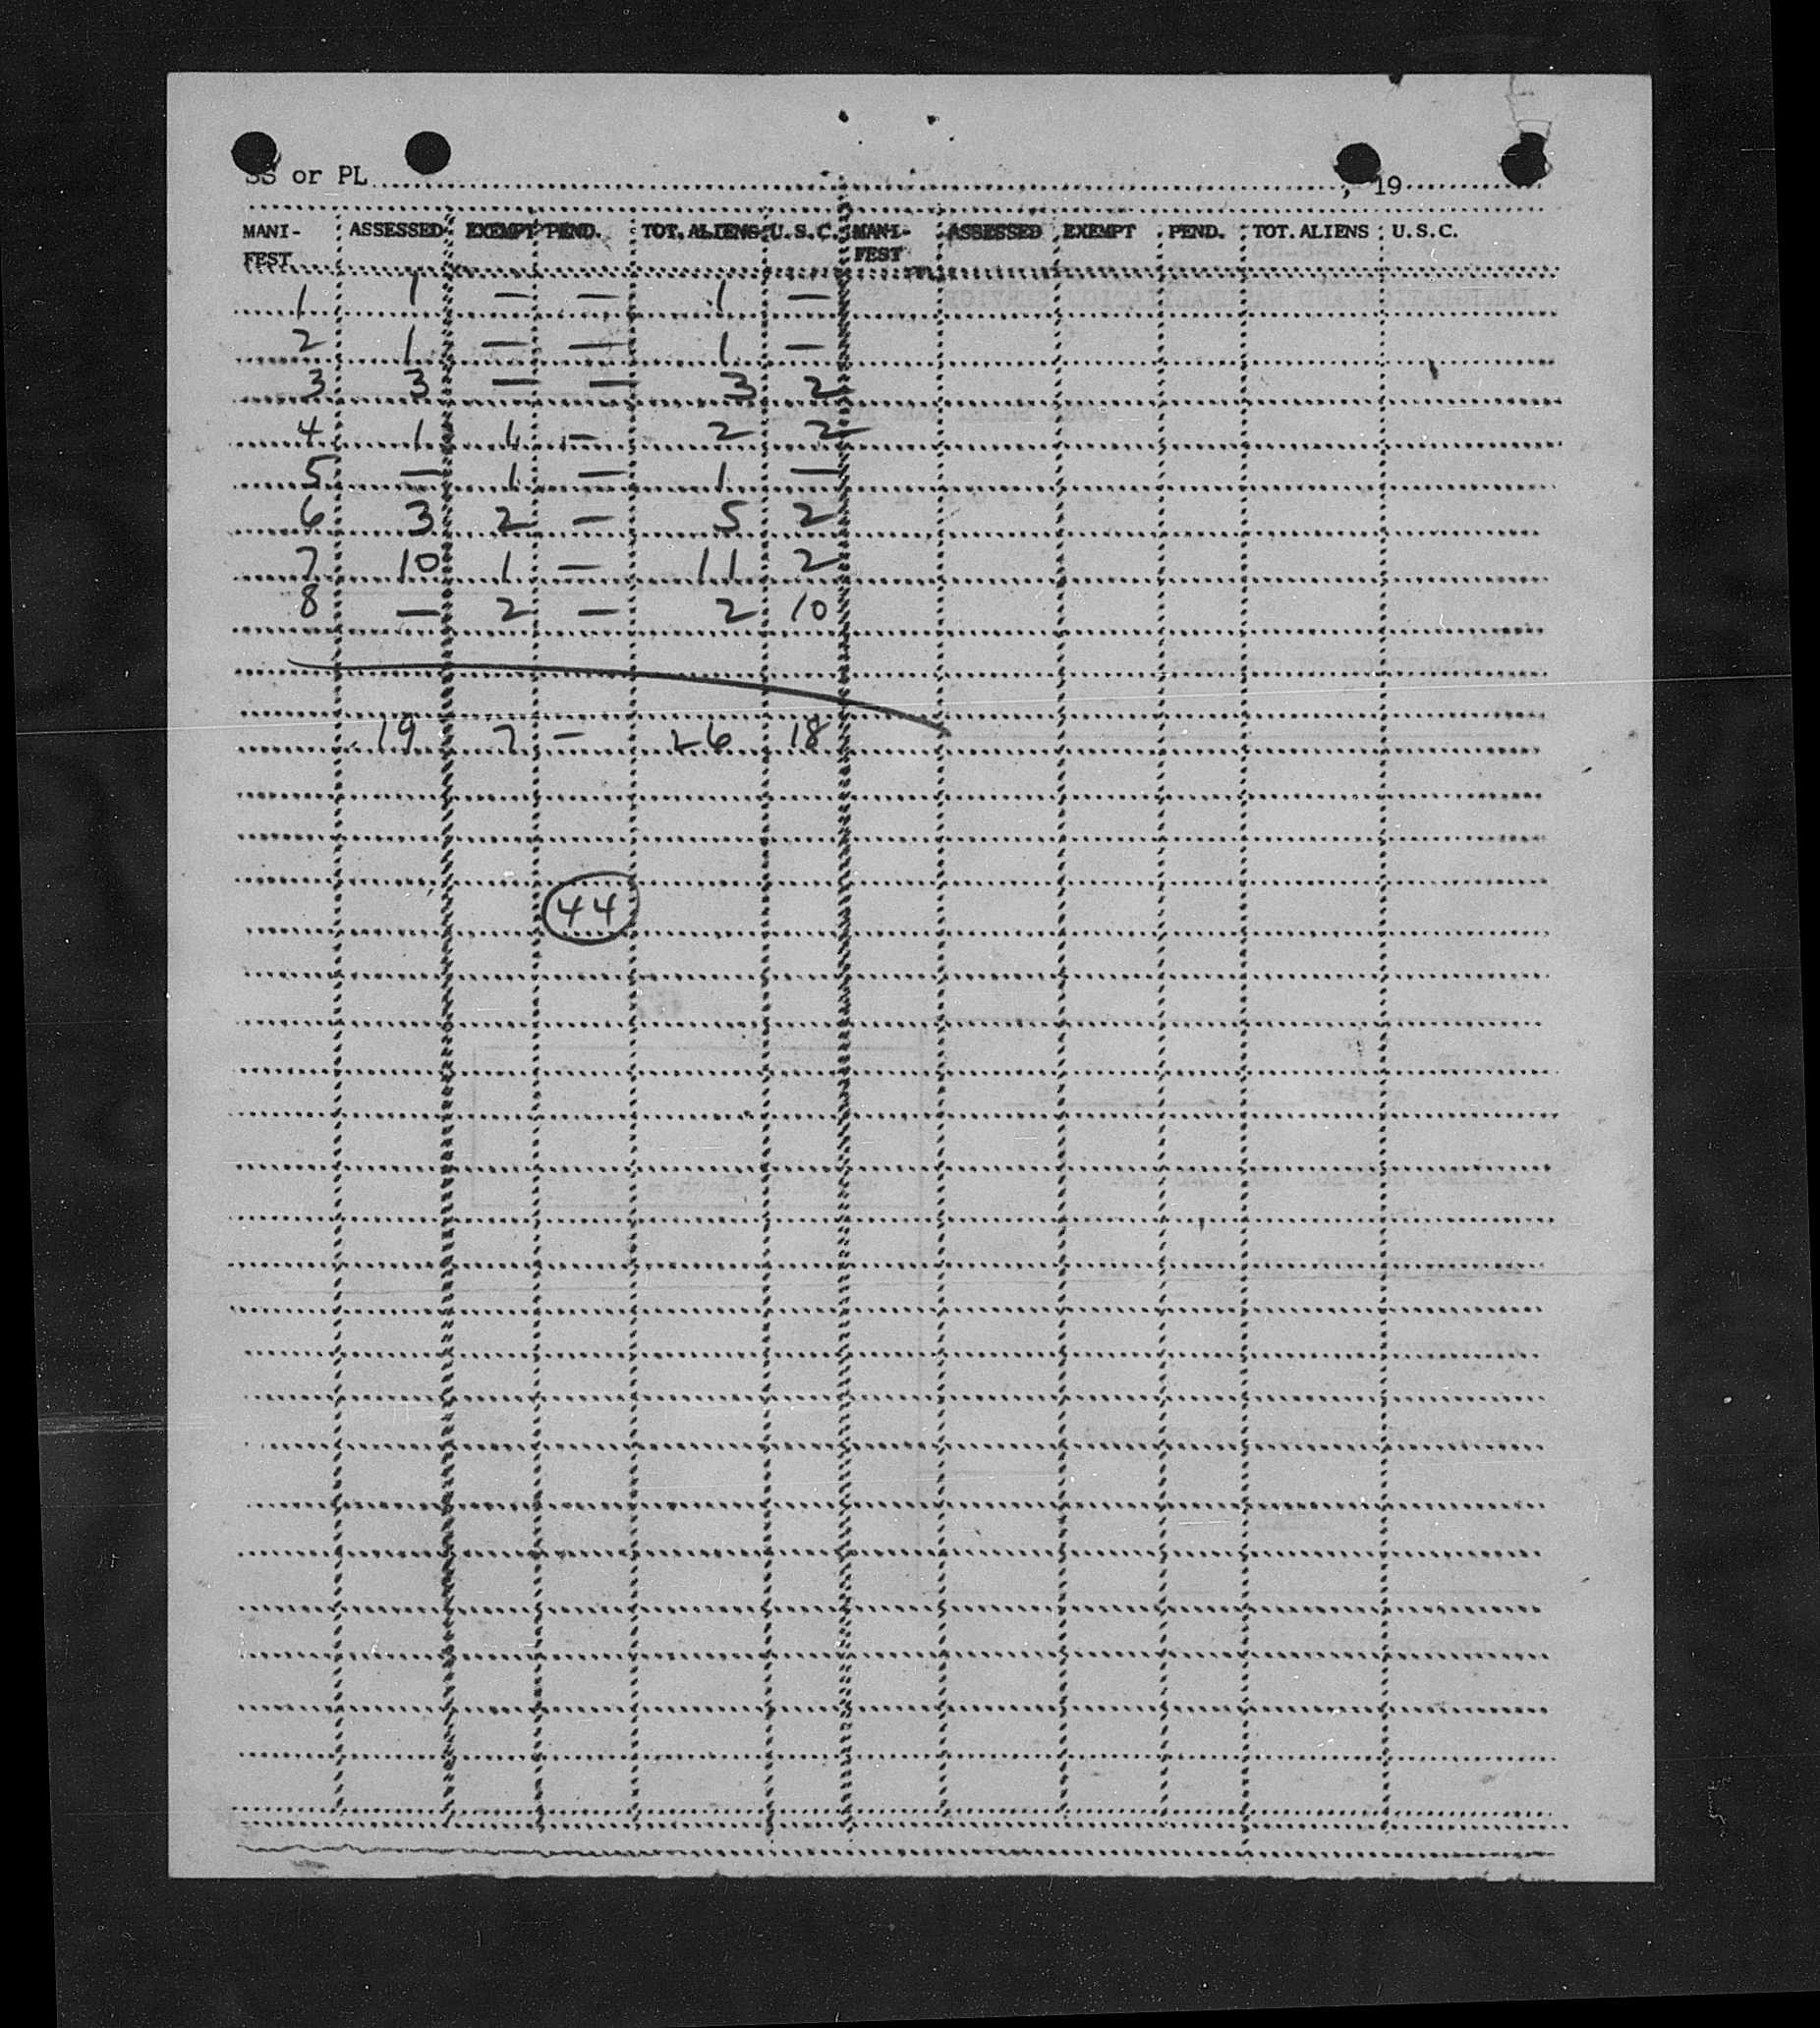 SS or PL ................................................................, 19............
MANI- ASSESSED EXEMPT PEND. TOT. ALIENS U.S.C. MANI- ASSESSED EXEMPT PEND. TOT. ALIENS U.S.C.
FEST FEST
1 1 — — 1 —
2 1 — — 1 —
3 3 — — 3 2
4 1 1 — 2 2
5 — 1 — 1 —
6 3 2 — 5 2
7 10 1 — 11 2
8 — 2 — 2 10
19 7 — 26 18
44